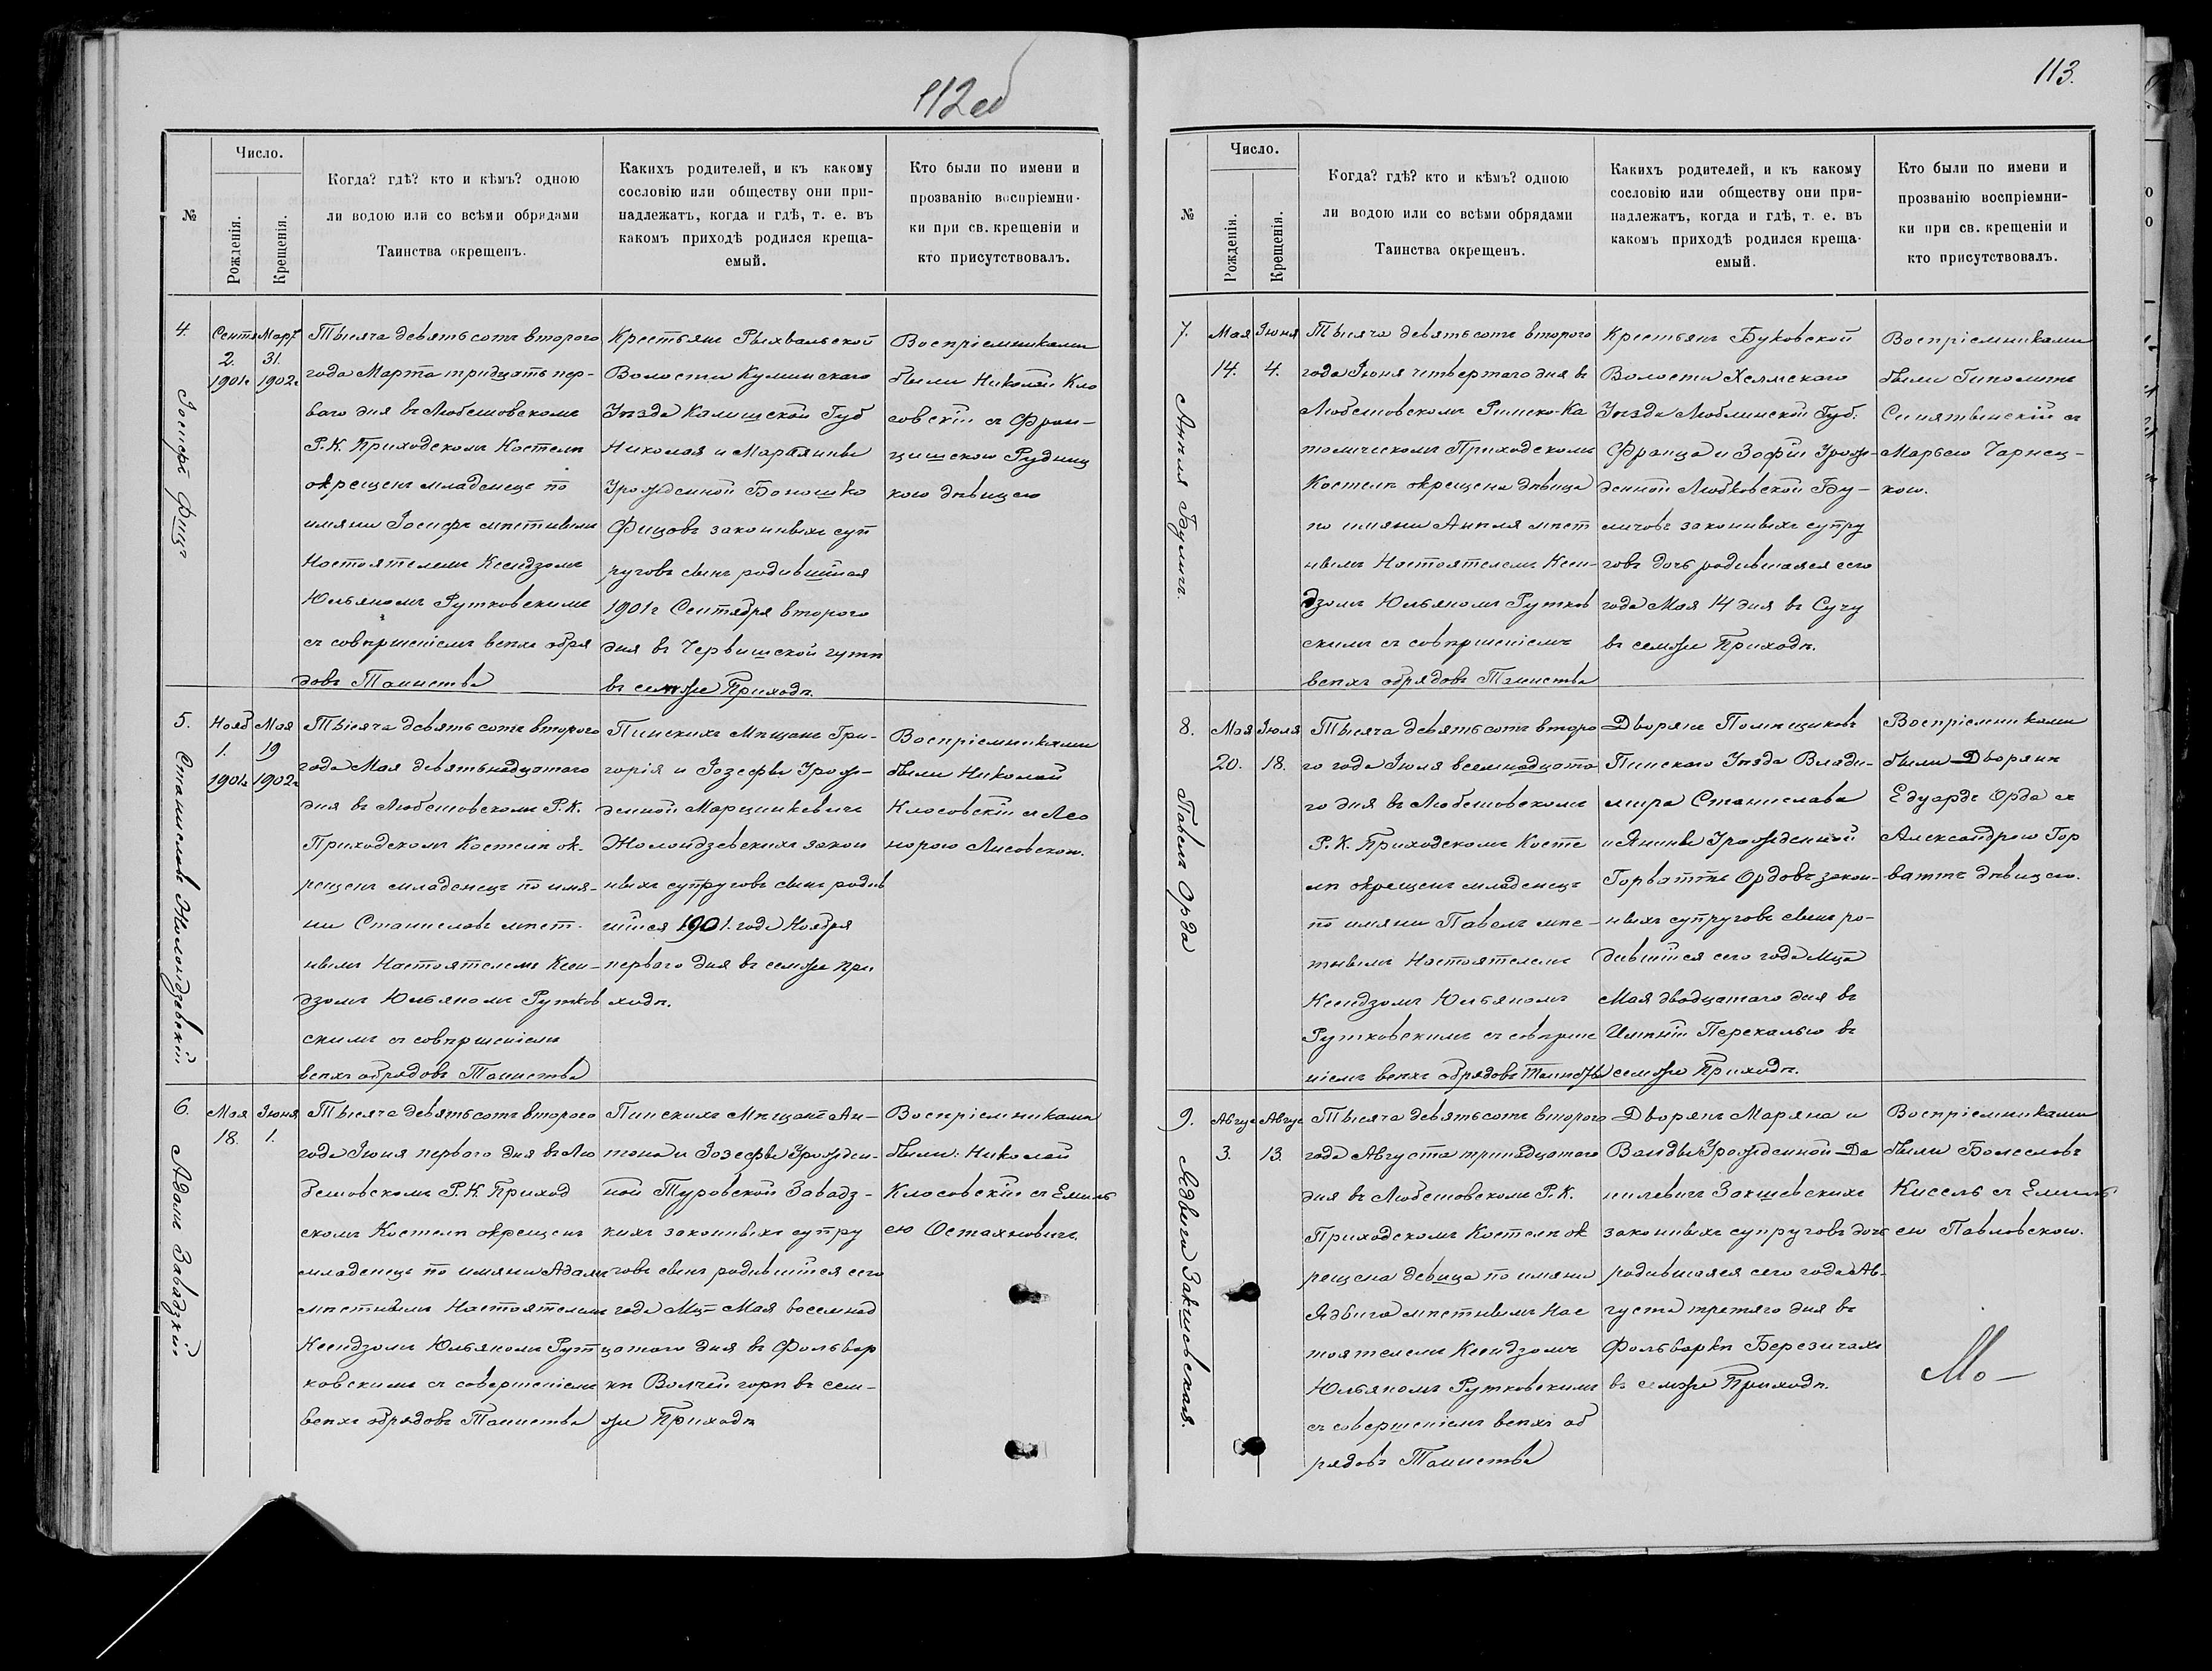 112об
№
Число.
Рожденія.
Крещенія.
Когда? гдѣ? кто и кѣмъ? одною
ли водою или со всѣми обрядами
Таинства окрещенъ.
Какихъ родителей, и къ какому
сословію или обществу они при-
надлежатъ, когда и гдѣ, т. е. въ
какомъ приходѣ родился креща-
емый.
Кто были по имени и
прозванію воспріемни-
ки при св. крещеніи и
кто присутствовалъ.
4.
Іосифъ Фицъ
Сентя
2.
1901г
Март
31.
1902г
Тысяча девятьсотъ второго
года Марта тридцать пер-
ваго дня въ Любешовскомъ
Р. К. Приходскомъ Костелѣ
окрещенъ младенецъ по
имяни Іосифъ мѣстнымъ
Настоятелемъ Ксендзомъ
Юльяномъ Рутковскимъ
съ совѣршеніемъ всѣхъ обря
довъ Таинства
Крестьянъ Рыхвальской
Волости Кулинскаго
Уѣзда Калишской Губ
Николая и Маріянны
Урожденной Боношко
Фицовъ законныхъ суп
руговъ сынъ родившійся
1901г Сентября второго
дня въ Червишской гутѣ
въ семъже Приходѣ.
Воспріемниками
были Николай Кло
совскій съ Фран-
цишкою Рудниц
кою дѣвицею
5.
Станиславъ Жолондзевскій
Нояб
1.
1901г
Мая
19
1902г
Тысяча девятьсотъ второго
года Мая девятьнадцатаго
дня въ Любешовскомъ Р. К.
Приходскомъ Костелѣ ок-
рещенъ младенецъ по имя-
ни Станиславъ мѣст-
нымъ Настоятелемъ Ксен-
дзомъ Юльяномъ Рутков
скимъ съ совѣршеніемъ
всѣхъ обрядовъ Таинства
Пинскихъ Мѣщанъ Гри-
горія и Іозефы Урож-
денной Марцинкевичъ
Жолондзевскихъ закон
ныхъ супруговъ сынъ родив
шійся 1901 года Ноября
перваго дня въ семъже При
ходѣ.
Воспріемниками
были Николай
Клосовскій съ Лео
норою Лисовскою.
6.
Адамъ Завадзкій
Мая
18.
Іюня
1.
Тысяча девятьсотъ второго
года Іюня перваго дня въ Лю
бешовскомъ Р. К. Приход
скомъ Костелѣ окрещенъ
младенецъ по имяни Адамъ
мѣстнымъ Настоятелемъ
Ксендзомъ Юльяномъ Рут
ковскимъ съ совершеніемъ
всѣхъ обрядовъ Таинства
Пинскихъ Мѣщанъ Ан-
тона и Іозефы Урожден-
ной Туровской Завадз-
кихъ законныхъ супру
говъ сынъ родившійся сего
года Мц Мая восемнад
цатаго дня въ Фольвар
кѣ Волчей горѣ въ сем-
же Приходѣ
Воспріемниками
были: Николай
Клосовскій съ Емиль
ею Остахновичъ.
113.
№
Число.
Рожденія.
Крещенія.
Когда? гдѣ? кто и кѣмъ? одною
ли водою или со всѣми обрядами
Таинства окрещенъ.
Какихъ родителей, и къ какому
сословію или обществу они при-
надлежатъ, когда и гдѣ, т. е. въ
какомъ приходѣ родился креща-
емый.
Кто были по имени и
прозванію воспріемни-
ки при св. крещеніи и
кто присутствовалъ.
7.
Анѣля Бумичъ.
Мая
14.
Іюня
4.
Тысяча девятьсотъ второго
года Іюня четвертаго дня въ
Любешовскомъ Римско-Ка
толическомъ Приходскомъ
Костелѣ окрещена дѣвица
по имяни Анѣля мѣст
нымъ Настоятелемъ Ксен-
дзомъ Юльяномъ Рутков
скимъ съ совѣршеніемъ
всѣхъ обрядовъ Таинства
Крестьянъ Буковской
Волости Хелмскаго
Уѣзда Люблинской Губ:
Франца и Зофіи Урож-
денной Любковской Бу-
мичовъ законныхъ супру
говъ дочь родившаяся сего
года Мая 14 дня въ Сучу
въ семъже Приходѣ.
Воспріемниками
были Гиполитъ
Синятынскій съ
Марьею Чарнец-
кою.
8.
Павелъ Орда
Мая
20.
Іюля
18.
Тысяча девятьсотъ второ
го года Іюля всемнадцата
го дня въ Любешовскомъ
Р. К. Приходскомъ Косте
лѣ окрещенъ младенецъ
по имяни Павелъ мѣс-
тнымъ Настоятелемъ
Ксендзомъ Юльяномъ
Рутковскимъ съ совѣрше
ніемъ всѣхъ обрядовъ Таинства
Дворянъ Помѣщиковъ
Пинскаго Уѣзда Влади-
мира Станислава
и Янины Урожденной
Горваттъ Ордовъ закон-
ныхъ супруговъ сынъ ро-
дившійся сего года Мца
Мая двадцатаго дня въ
Имѣніи Перекалью въ
семъже Приходѣ.
Воспріемниками
были Дворянѣ
Едуардъ Орда съ
Александрою Гор
ваттъ дѣвицею.
9.
Ядвига Закшевская.
Авгус
3.
Авгус
13.
Тысяча девятьсотъ второго
года Августа тринадцатаго
дня въ Любешовскомъ Р. К.
Приходскомъ Костелѣ ок
рещена девица по имяни
Ядвига мѣстнымъ Нас
тоятелемъ Ксендзомъ
Юльяномъ Рутковскимъ
съ совершеніемъ всѣхъ об
рядовъ Таинства
Дворянъ Маряна и
Ванды Урожденной Да
нилевичъ Закшевскихъ
законныхъ супруговъ дочь
родившаяся сего года Ав-
густа третяго дня въ
Фольваркѣ Березичахъ
въ семъже Приходѣ.
Воспріемниками
были Болеславъ
Кисель съ Емиль
ею Павловскою.
Мо-